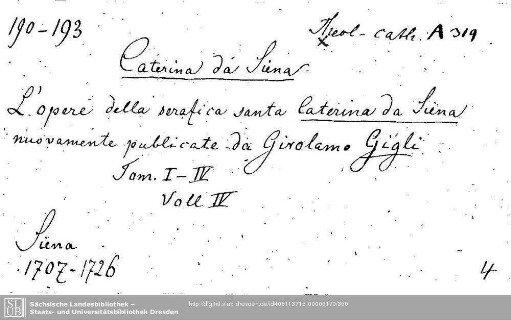 190-193
Theol. cath. A 319
Caterina da Siena
L'opere della serafica santa Caterina da Siena
nuovamente publicate da Girolamo Gigli
Tom. I-IV
Voll IV
Siena
1707-1726
4
SLUB
Sächsische Landesbibliothek –
Staats- und Universitätsbibliothek Dresden